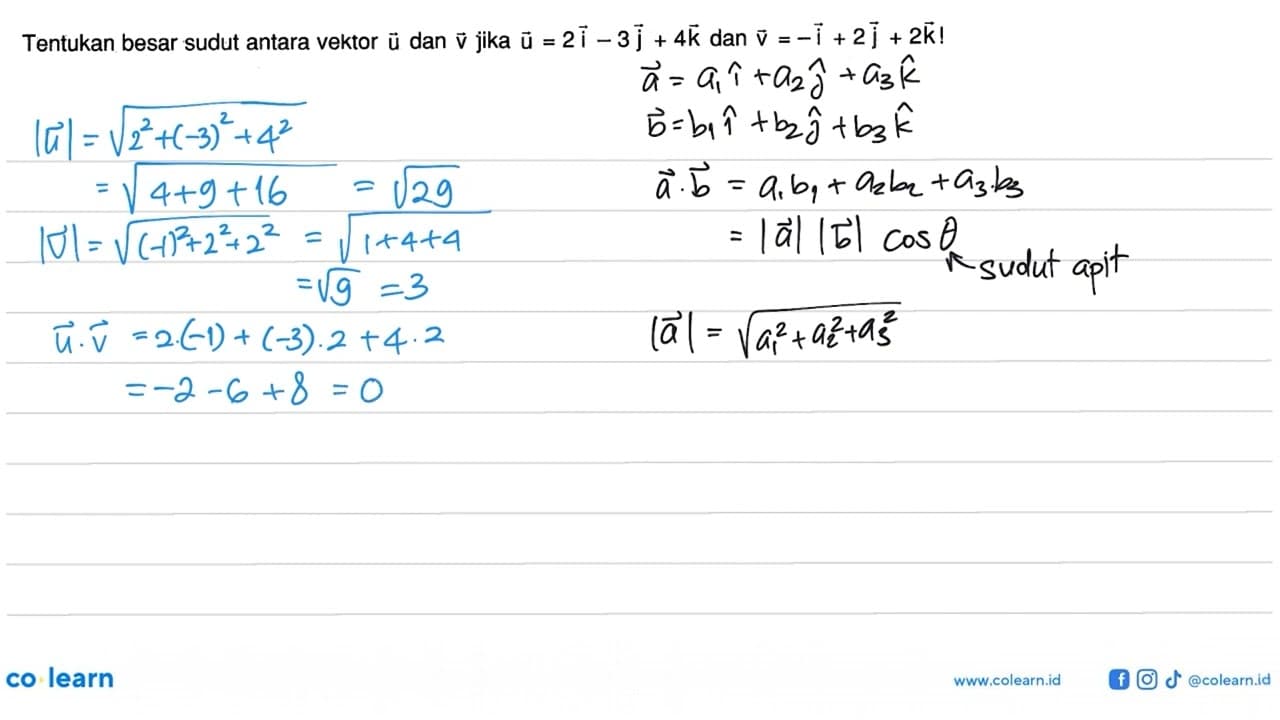 Tentukan besar sudut antara vektor ū dan v̄ jika ū = 2i⃗ − 3j⃗ + 4k⃗ dan v̄ = −i⃗ + 2j⃗ + 2k⃗!
a⃗ = a₁î + a₂ĵ + a₃k̂
b⃗ = b₁î + b₂ĵ + b₃k̂
a⃗ . b⃗ = a₁b₁ + a₂b₂ + a₃.b₃
= |a⃗| |b⃗| cos θ
sudut apit
|a⃗| = √(a₁² + a₂² + a₃²)
|u⃗| = √(2² + (−3)² + 4²)
= √(4+9+16) = √29
|v⃗| = √((−1)² + 2² + 2²) = √(1+4+4)
= √9 = 3
u⃗ . v⃗ = 2.(−1) + (−3).2 + 4.2
= −2 − 6 + 8 = 0
co learn
www.colearn.id
@colearn.id